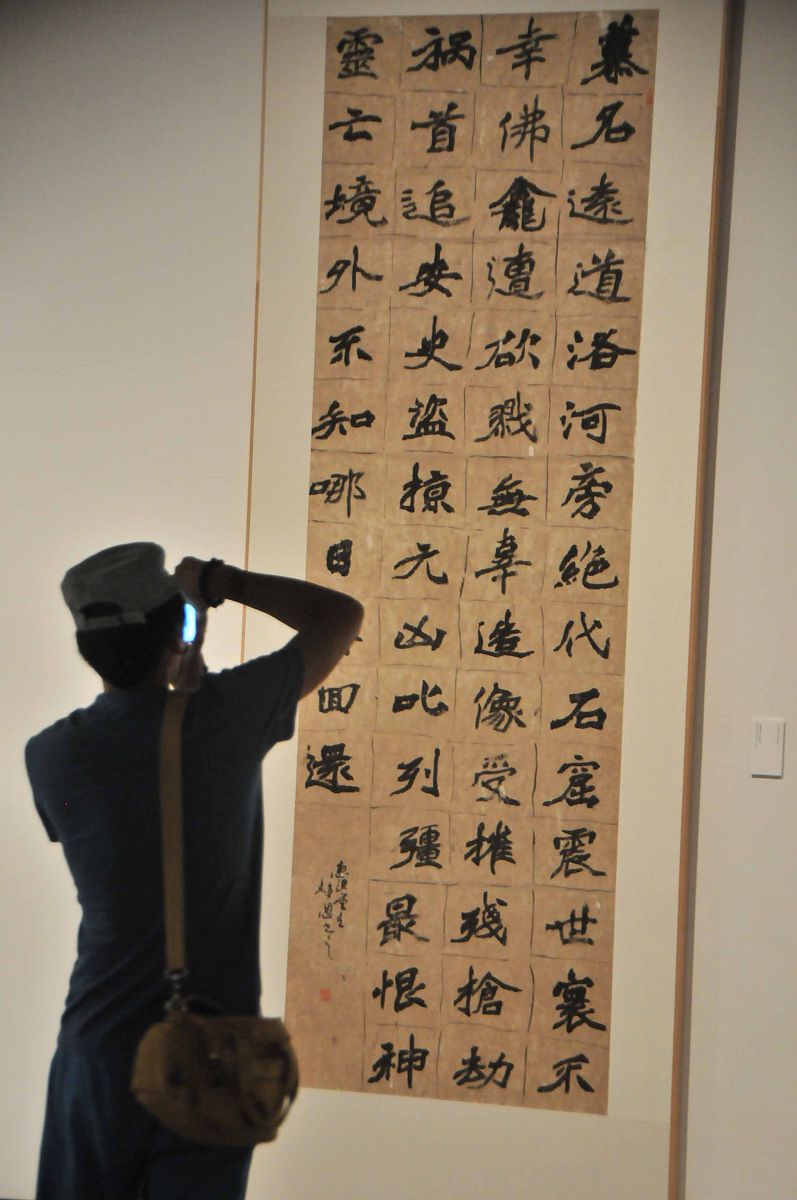 慕名遠道洛河旁絕代石窟震世寰不
幸佛龕遭欲戮無辜造像受摧殘搶劫
禍首追安史盜掠元凶叱列疆最恨神
靈云境外不知哪日回還